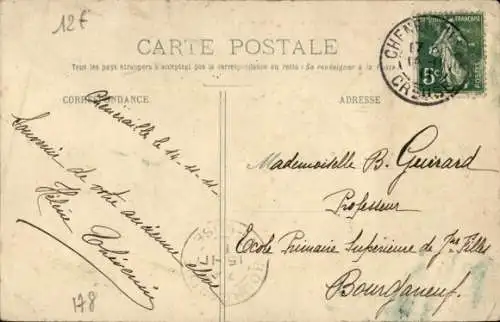 12€
CARTE POSTALE
Tous les pays étrangers n'acceptent pas la correspondance au recto : Se renseigner à la Poste
CORRESPONDANCE
ADRESSE
Chénérailles le 14-11-11
Souvenir de votre ancienne élève
Hélène Thévenin
Mademoiselle B. Guérard
Professeur
Ecole Primaire Supérieure de Jnes Filles
Bourganeuf
CHEN
CREUSE
5c
POSTES
178